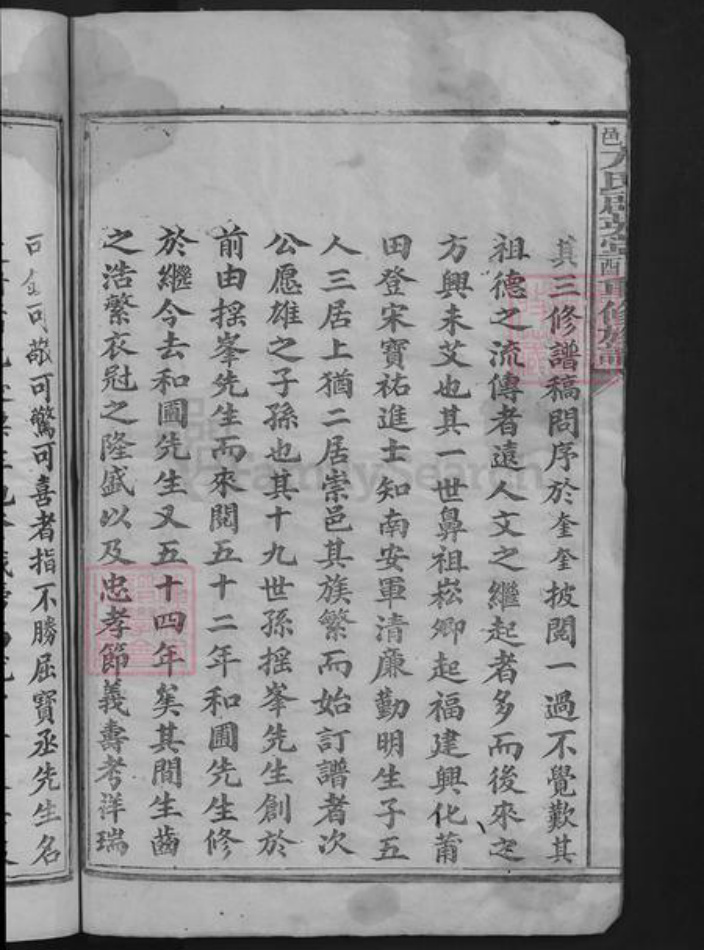 其三修譜稿問序於奎奎披閱一過不覺歎其
祖德之流傳者遠人文之繼起者多而後來之
方興未艾也其一世鼻祖崧卿起福建興化莆
田登宋寶祐進士知南安軍清廉勤明生子五
人三居上猶二居崇邑其族繁而始訂譜者次
公愿雄之子孫也其十九世孫搖峯先生創於
前由搖峯先生而來閱五十二年和圃先生修
於繼今去和圃先生又五十四年矣其間生齒
之浩繁衣冠之隆盛以及忠孝節義壽考祥瑞
可敬可驚可喜者指不勝屈寶丞先生名
FamilySearch